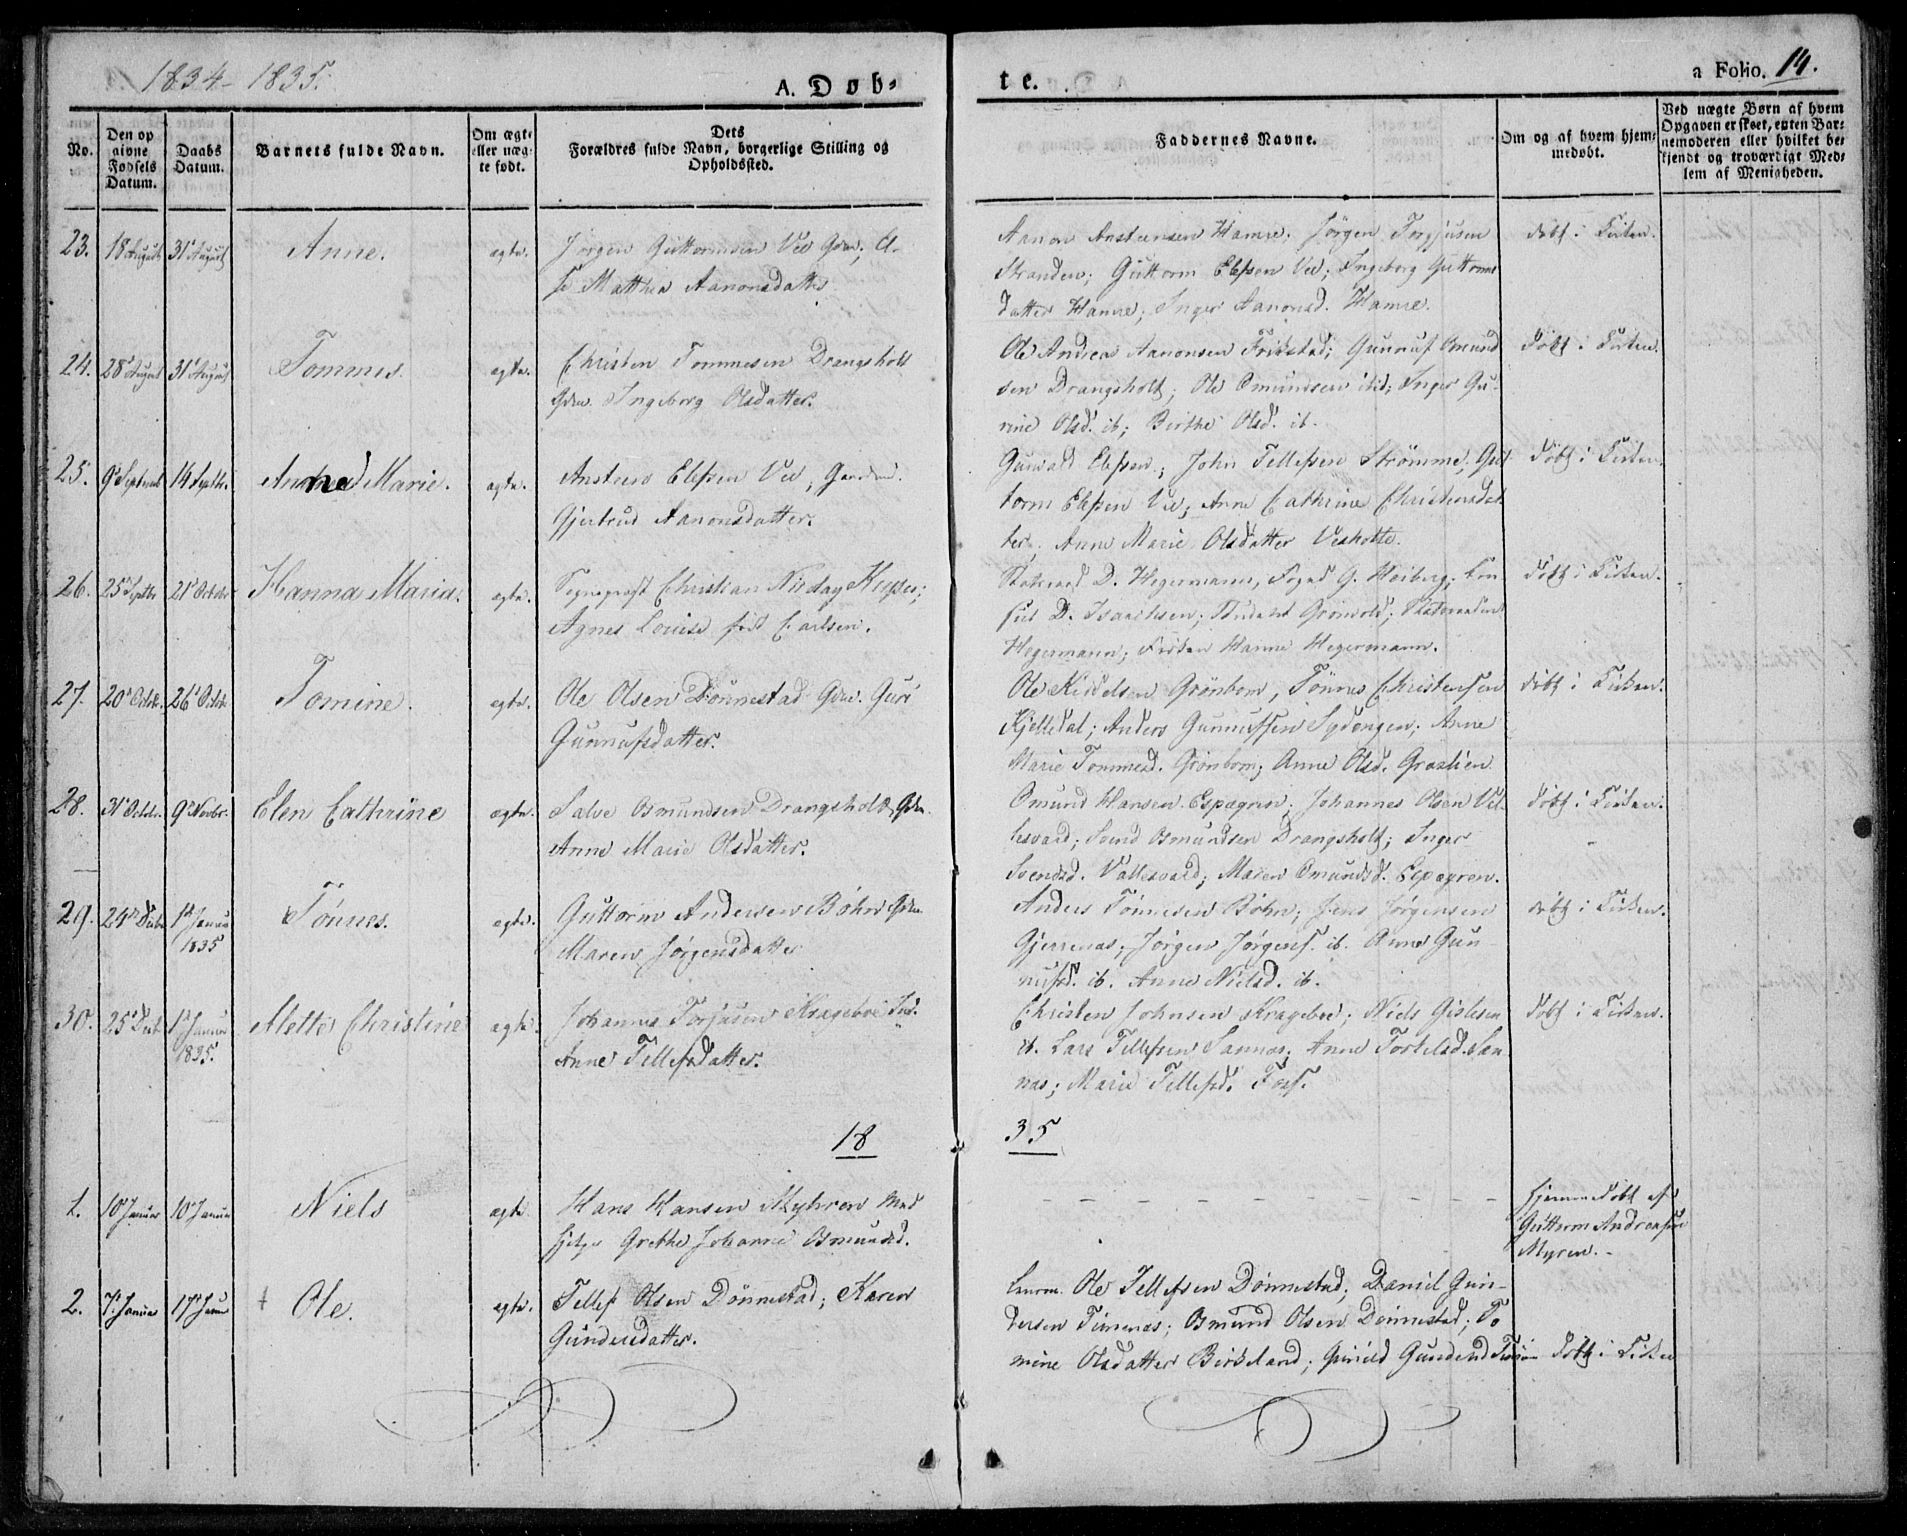 1834-1835.
A. Døb-
te.
a Folio. 14.
No.
Den opgivne Fødsels Datum.
Daabs Datum.
Barnets fulde Navn.
Om ægte eller uægte født.
Dets Forældres fulde Navn, borgerlige Stilling og Opholdssted.
Faddernes Navne.
Om og af hvem hjemmedøbt.
Ved uægte Børn af hvem Opgaven er skeet, enten Barnemoderen eller hvilket bekjendt og troværdigt Medlem af Menigheden.
23. 18 August 31 August Anne. ægte.
Jørgen Guttormsen Vee Grdm; El-
se Matthea Aanonsdatter
Aanon Anstensen Hamre; Jørgen Torgjusen
Stranden; Guttorm Elefsen Vee; Ingeborg Guttorms
datter Hamre; Inger Aanonsd. Hamre.
døbt i Kirken.
24. 28 August 31 August Tommes. ægte.
Christen Tommesen Drangsholt
Grdm. Ingeborg Olsdatter.
Ole Andrea Aanonsen Frikstad; Gunnuf Omund
sen Drangsholt; Ole Omundsen ibid; Inger Gu-
rine Olsd. ib; Birthe Olsd. ib.
døbt i Kirken.
25. 9 Septemb 14 Septbr. Anne Marie. ægte.
Anstens Elefsen Vee, Gaardm.
Gjertrud Aanonsdatter.
Gunvald Elefsen; John Tellefsen Strømme; Gut
torm Elefsen Vee; Anne Cathrine Christensdat
ter; Anne Marie Olsdatter Vesholte.
døbt i Kirken.
26. 25 Septbr 21 Octobr Hanna Maria. ægte.
Sognepræst Christian Keyser;
Agnes Louise født Carlsen.
D. Hegermann, Foged G. Heiberg; Con
sul D. Isaachsen; Student Grønvold;
Hegermann; Frøken Hanne Hegermann.
døbt i Kirken.
27. 20 Octobr. 26 Octobr Tomine. ægte.
Ole Olsen Dønnestad Grdm. Guri
Gunnufsdatter.
Ole Kieddelsen Grønbom, Tønnes Christensen
Kjelledal; Anders Gunnufsen Sydengen; Anne
Marie Tommesd. Grønbom; Anne Olsd. Graslien
døbt i Kirken.
28. 31 Octobr. 9 Novbr. Elen Cathrine ægte.
Salve Osmundsen Drangsholt, Grdm.
Anne Marie Olsdatter.
Omund Hansen Espegren; Johannes Olsen Val-
lesværd; Svend Osmundsen Drangsholt; Inger
Svendsd. Vallesværd; Maren Omundsd. Espegren.
døbt i Kirken.
29. 24 Decbr 1 Januar 1835 Tønnes. ægte.
Guttorm Andersen Bøhn Grdm
Maren Jørgensdatter
Anders Tønnesen Bøhn; Jens Jørgensen
Gjerrenæs; Jørgen Jørgens. ib. Anne Gun-
nufsd. ib. Anne Nielsd. ib.
døbt i Kirken.
30. 25 Decb 1 Januar 1835. Mette Christine ægte.
Johannes Torjusen Kragebøe
Anne Tellefsdatter.
Christen Johnsen Kragebøe; Niels Gislesen
ib. Lars Tellefsen Sannæs; Anne Torkelsd. San
næs; Marie Tellefsd. Foss.
døbt i Kirken.
18
35
1. 10 Januar 10 Januar Niels ægte
Hans Hansen Myhren Mad
Grethe Johanne Osmundsd.
hjemmedøbt af
Guttorm Andreasen
Myren.
2. 7 Januar 17 Janr Ole. ægte.
Tellef Olsen Dønnestad; Karen
Gundersdatter.
Ole Tellefsen Dønnestad; Daniel Gun-
dersen Timenæs; Osmund Olsen Dønnestad; To
mine Olsdatter Birkeland; Gunild Gundersd
døbt i Kirken